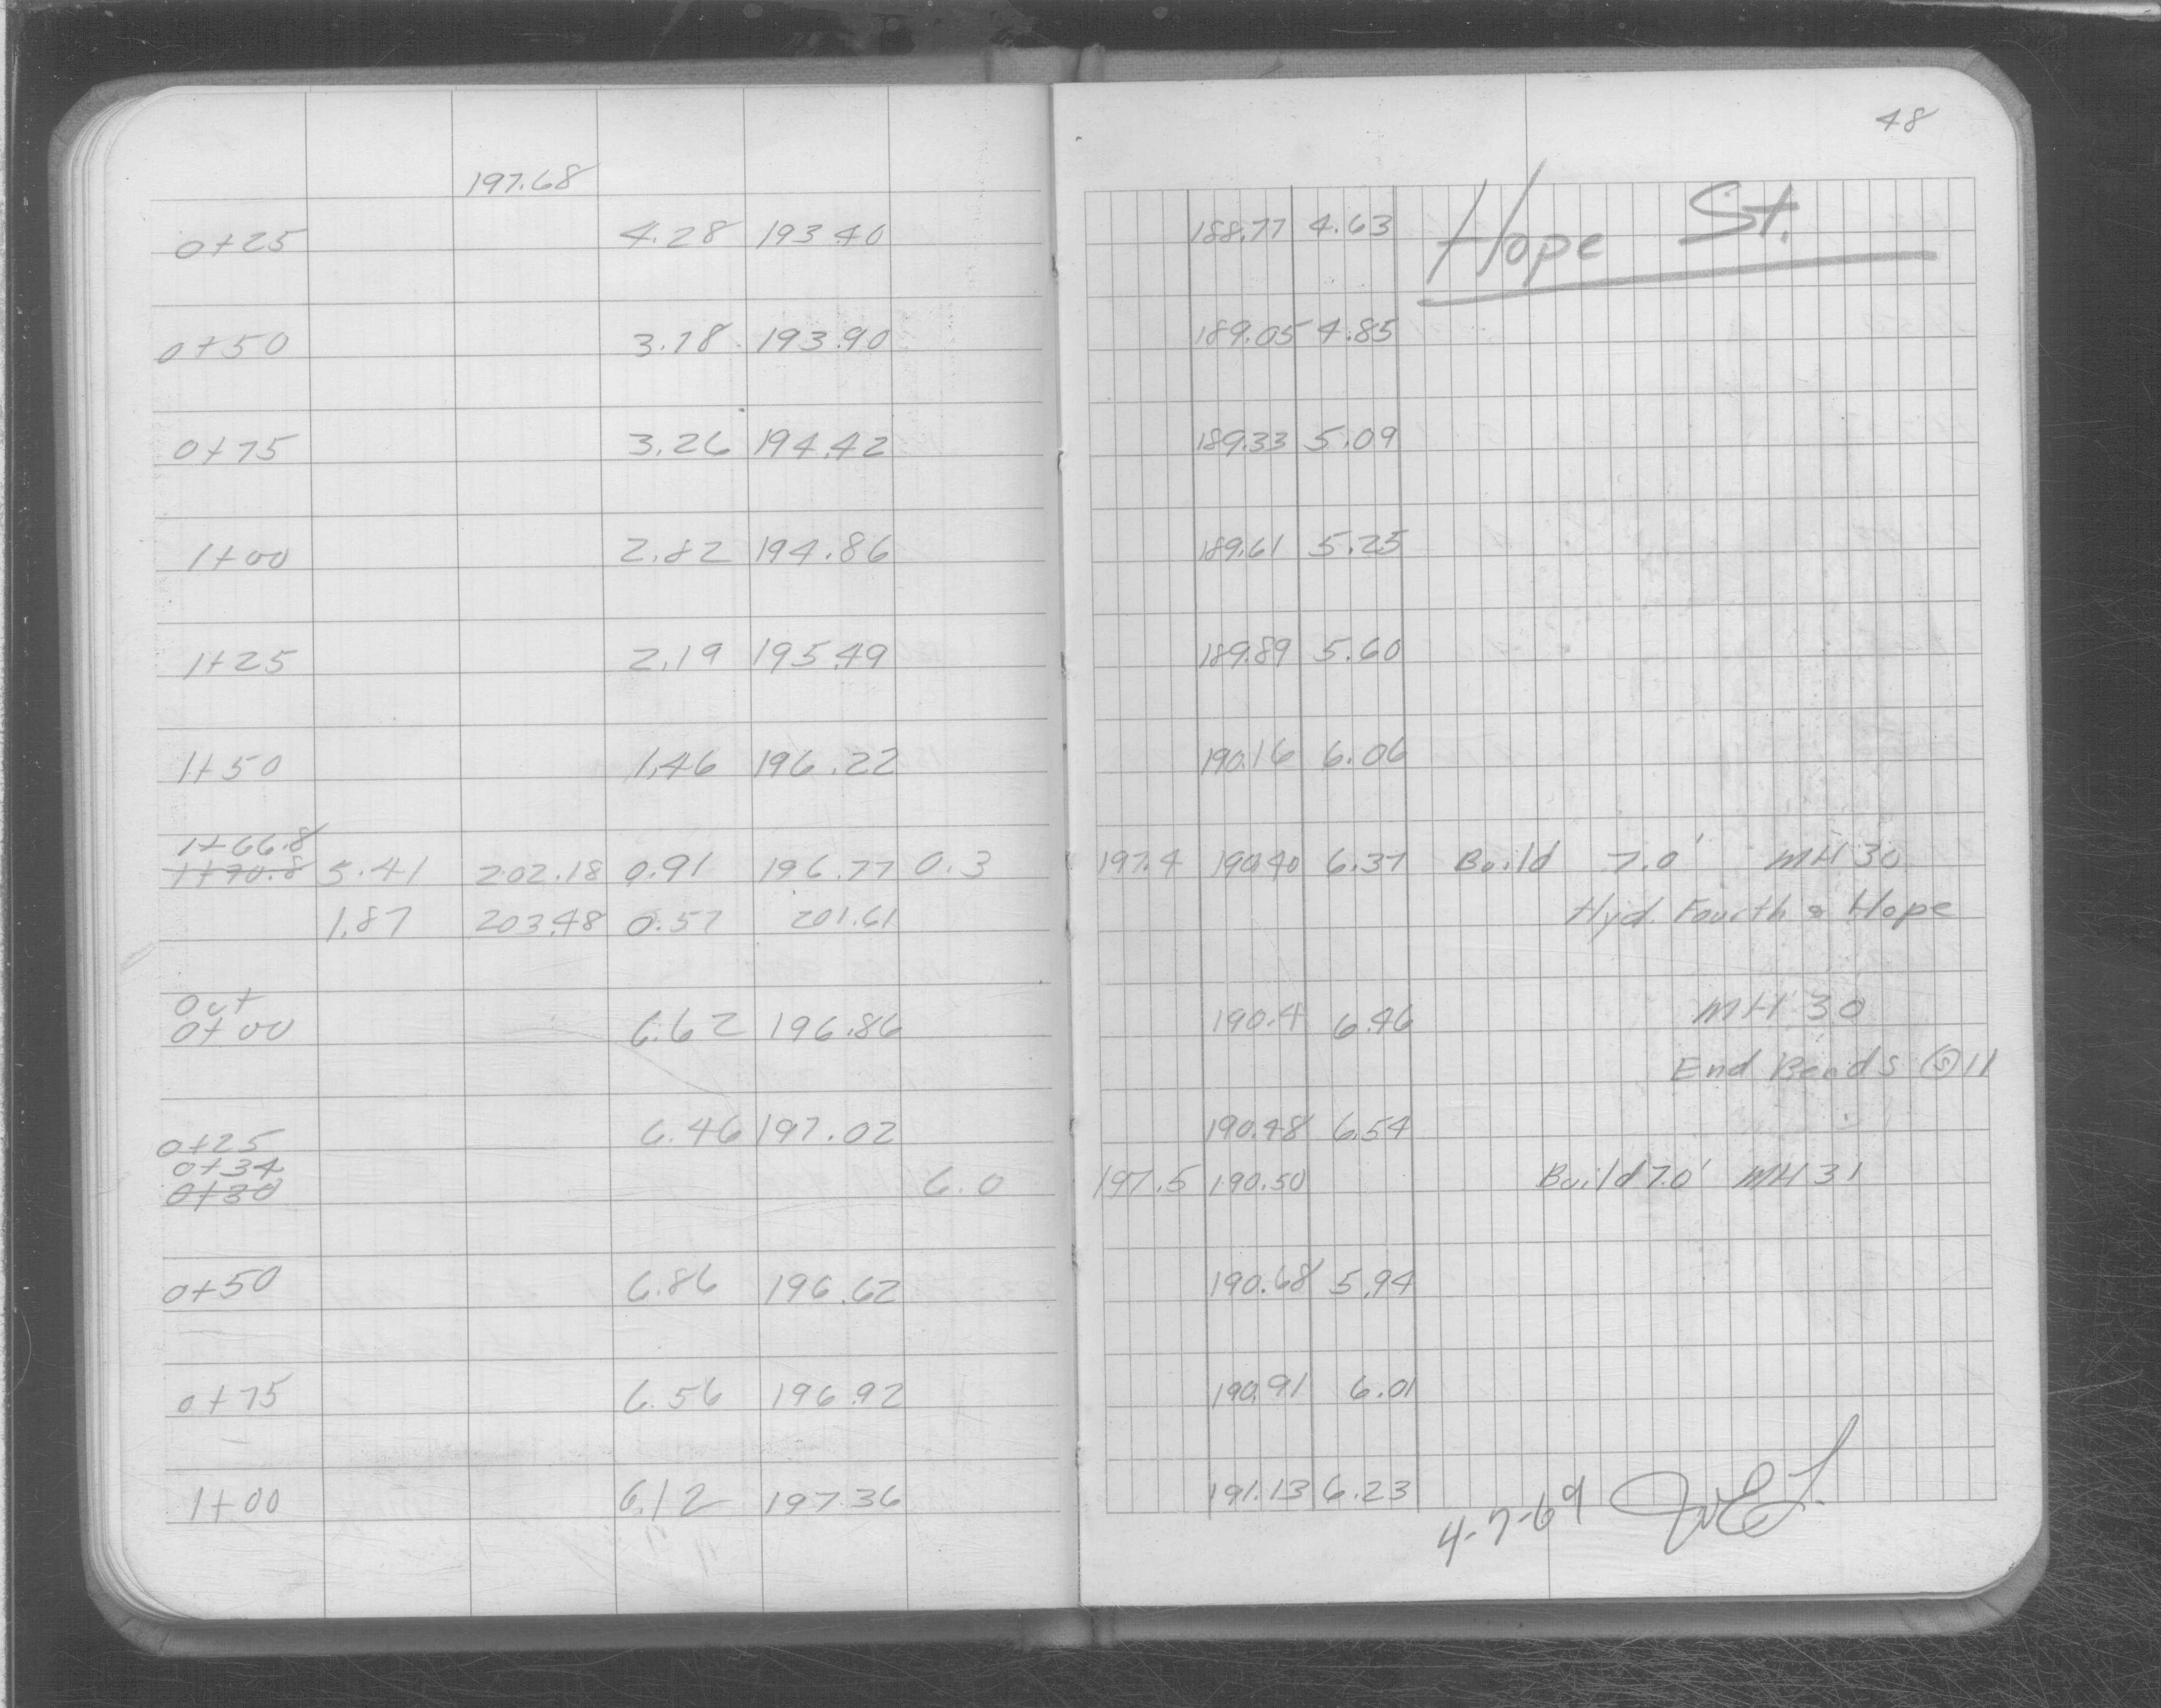 48
197.68
0+25 4.28 193.40 188.77 4.63 Hope St.
0+50 3.78 193.90 189.05 4.85
0+75 3.26 194.42 189.33 5.09
1+00 2.82 194.86 189.61 5.25
1+25 2.19 195.49 189.89 5.60
1+50 1.46 196.22 190.16 6.06
1+66.8
1+70.8 5.41 202.18 0.91 196.77 0.3 197.4 190.40 6.37 Build 7.0' MH 30
1.87 203.48 0.57 201.61 Hyd. Fourth & Hope
Out
0+00 6.62 196.86 190.4 6.46 MH 30
End Bends @ 11
0+25 6.46 197.02 190.48 6.54
0+34
0+30 6.0 197.5 190.50 Build 7.0' MH 31
0+50 6.86 196.62 190.68 5.94
0+75 6.56 196.92 190.91 6.01
1+00 6.12 197.36 191.13 6.23
4-7-69